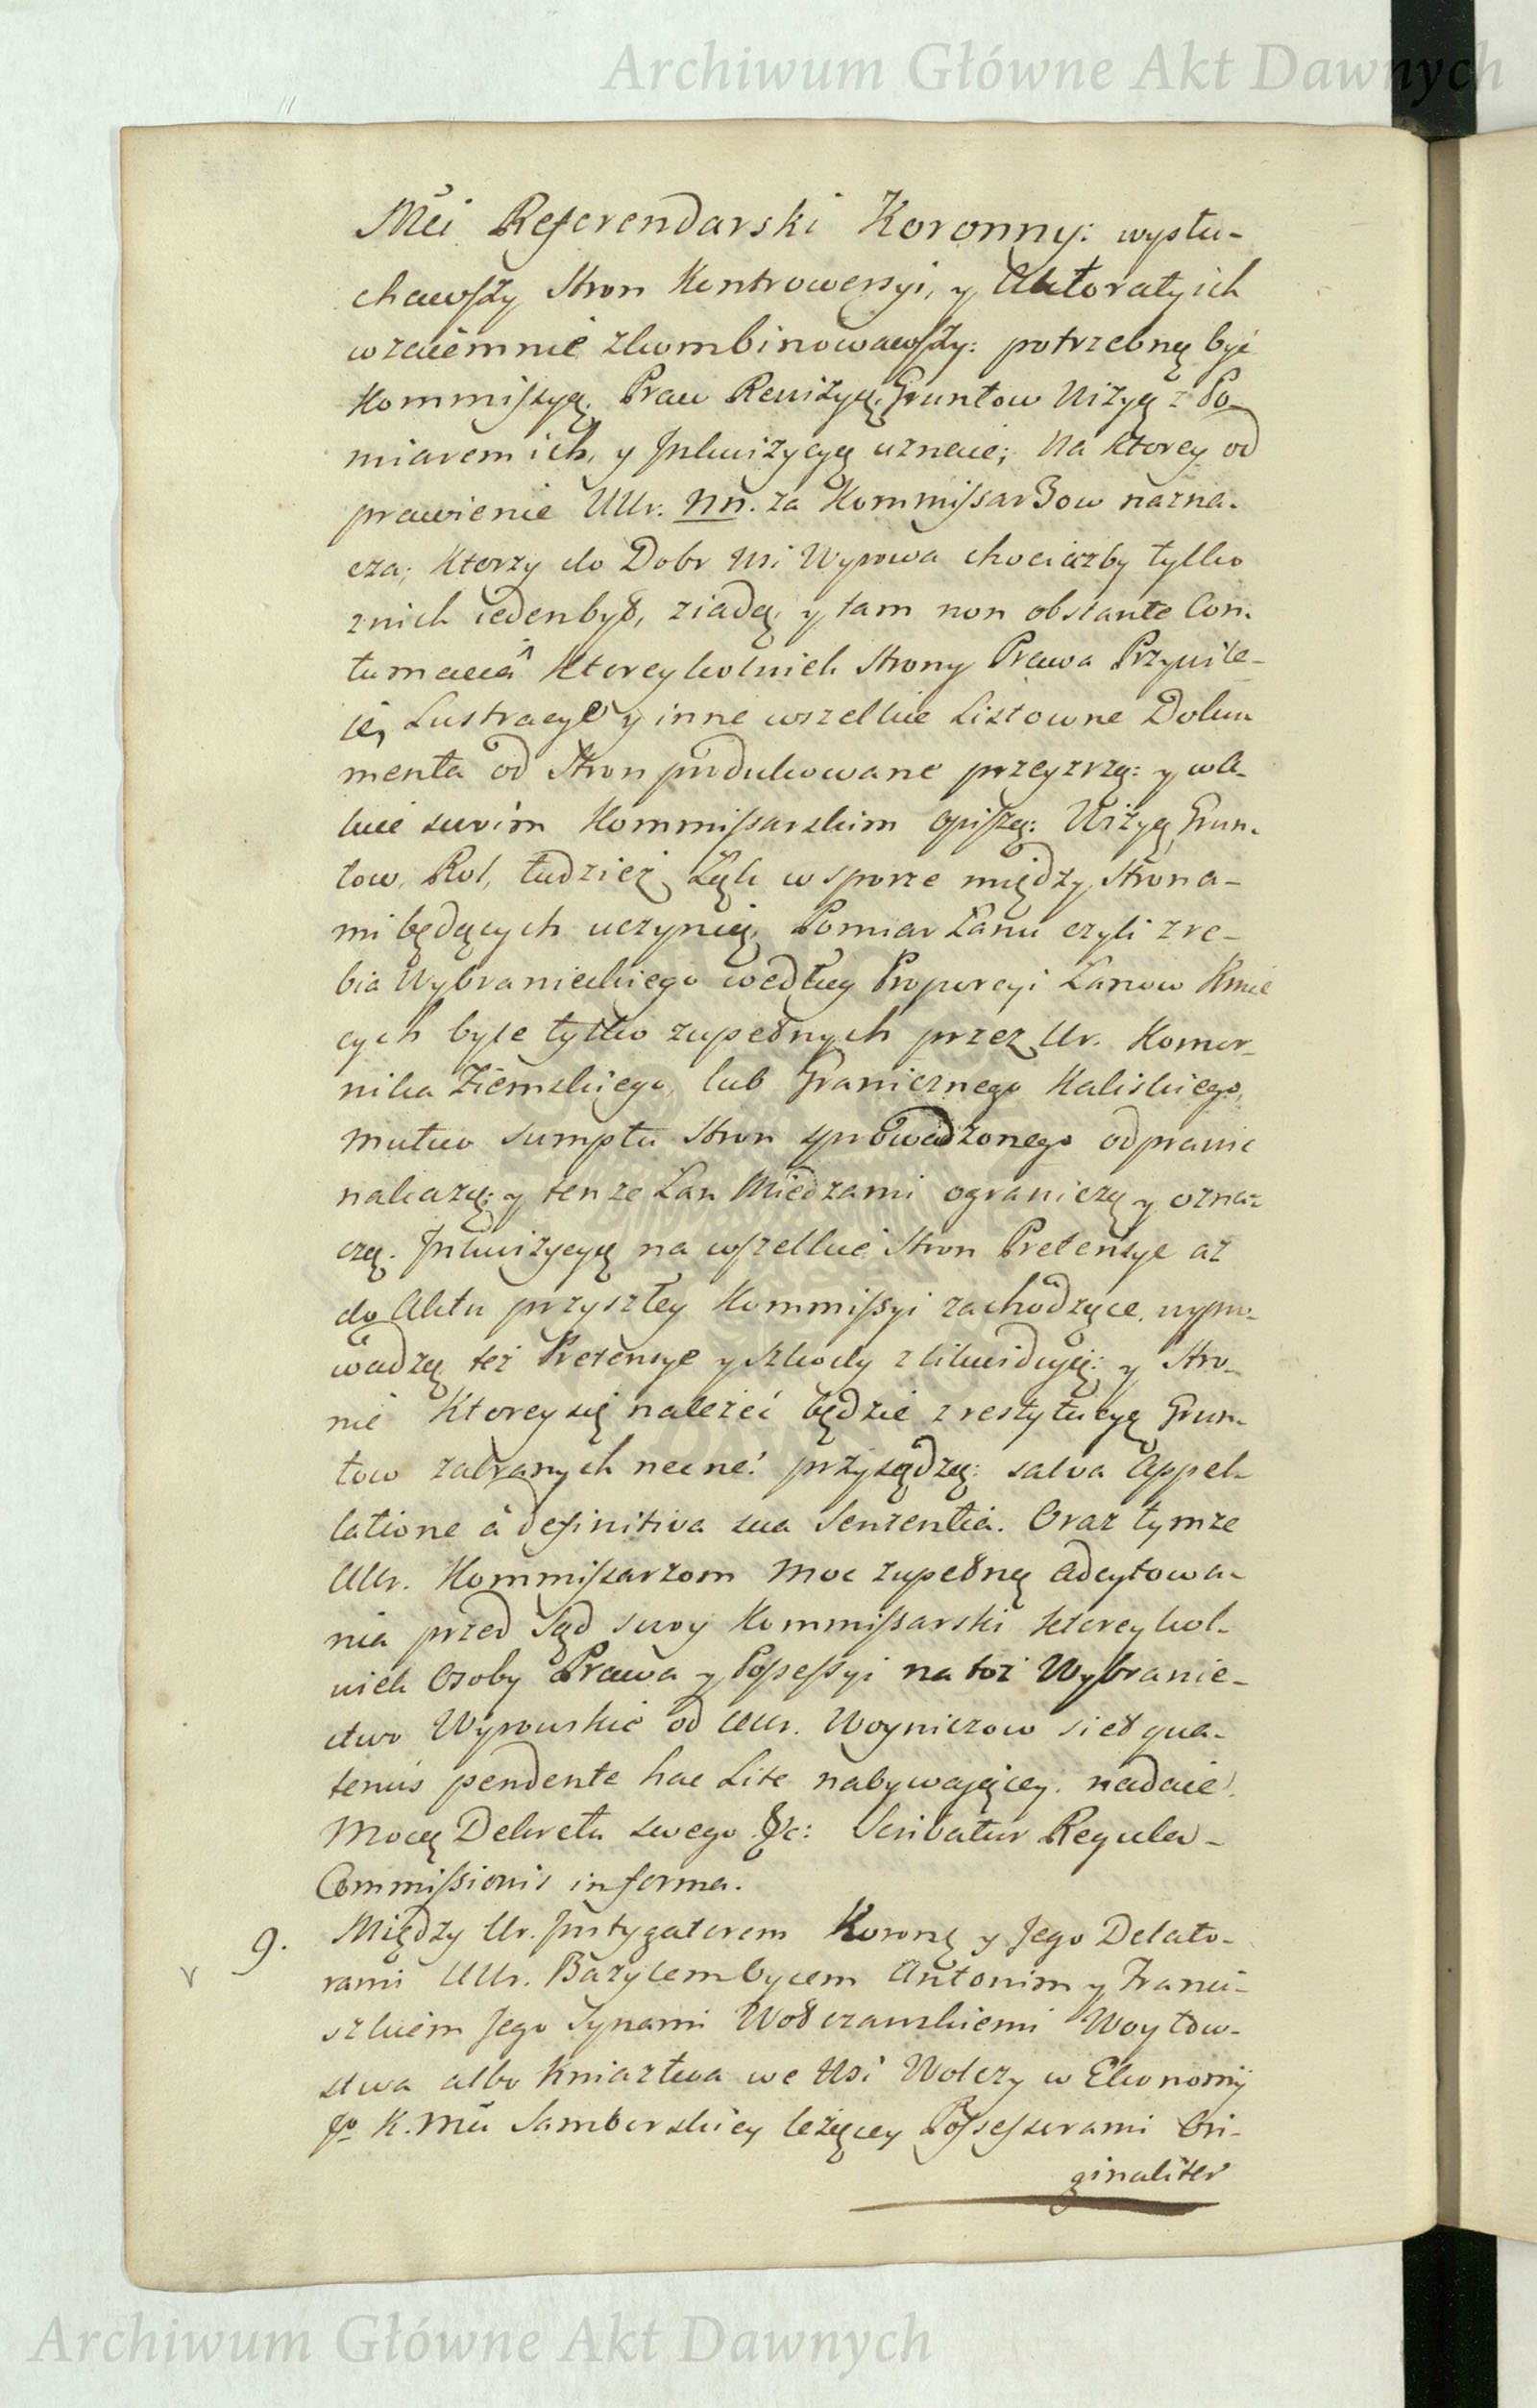 Archiwum Główne Akt Dawnych
Mći Referendarski Koronny: wysłu-
chawszy Stron Kontrowersyi, y Aktoraty ich
wzaiemnie zkombinowawszy: potrzebną być
Kommissyą, Praw Rewizyą, Gruntow Wizyą z Po
miarem ich, y Inkwizycyą uznaie; Na ktorey od
prawienie UUr. NN. za Kommissarzow nazna-
cza; ktorzy do Dobr Wsi Wyrowa chociażby tylko
znich ieden był, ziadą, y tam non obstante Con-
tumacia ktoreykolwiek Strony Prawa Przywile-
ie, Lustracye y inne wszelkie Listowne Doku
menta od Stron produkowane przeyzrzą: y w A-
kcie swoim Kommissarskim opiszą: Wizyą Grun-
tow, Rol, tudzież Łąk w sporze między Strona-
mi będących uczynią, Pomiar Łanu czyli zre-
bia Wybranieckiego według Proporcyi Łanow Kmie
cych byle tylko zupełnych przez Ur. Komor-
nika Ziemskiego, lub Granicznego Kaliskiego,
mutuo sumptu Stron sprowadzonego odprawić
nakażą: y tenze Łan Miedzami ograniczą y ozna-
czą. Inkwizycyą na wszelkie Stron Pretensye aż
do Aktu przyszłey Kommissyi zachodzące, wypro-
wadzą też Pretensye y Szkody zlikwidują: y Stro-
nie ktorey się należeć będzie z restytucyą Grun-
tow zabranych necne! przysądzą: salva Appel-
latione a definitiva sua Sententia. Oraz tymze
UUr. Kommissarzom moc zupełną adcytowa-
nia przed Sąd swoy Kommissarski ktoreykol-
wiek Osoby Prawa y Possessyi na toż Wybranie-
ctwo Wyrowskie od UUr. Woyniczow si et qua-
tenus pendente hac Lite nabywaiącey, nadaie,
Mocą Dekretu swego &c: Scribatur Regular-
Commissionis in forma.
9. Między Ur. Instygatorem Koronę y Jego Delato-
v rami UUr. Bazylem Oycem Antonim y Franci-
szkiem Jego Synami Wołczanskiemi Woytow-
stwa albo Kniaztwa we Wsi Wolczy w Ekonomij
Jo K. Mći Samborskiey leżącey Possessorami Ori-
ginaliter
Archiwum Główne Akt Dawnych